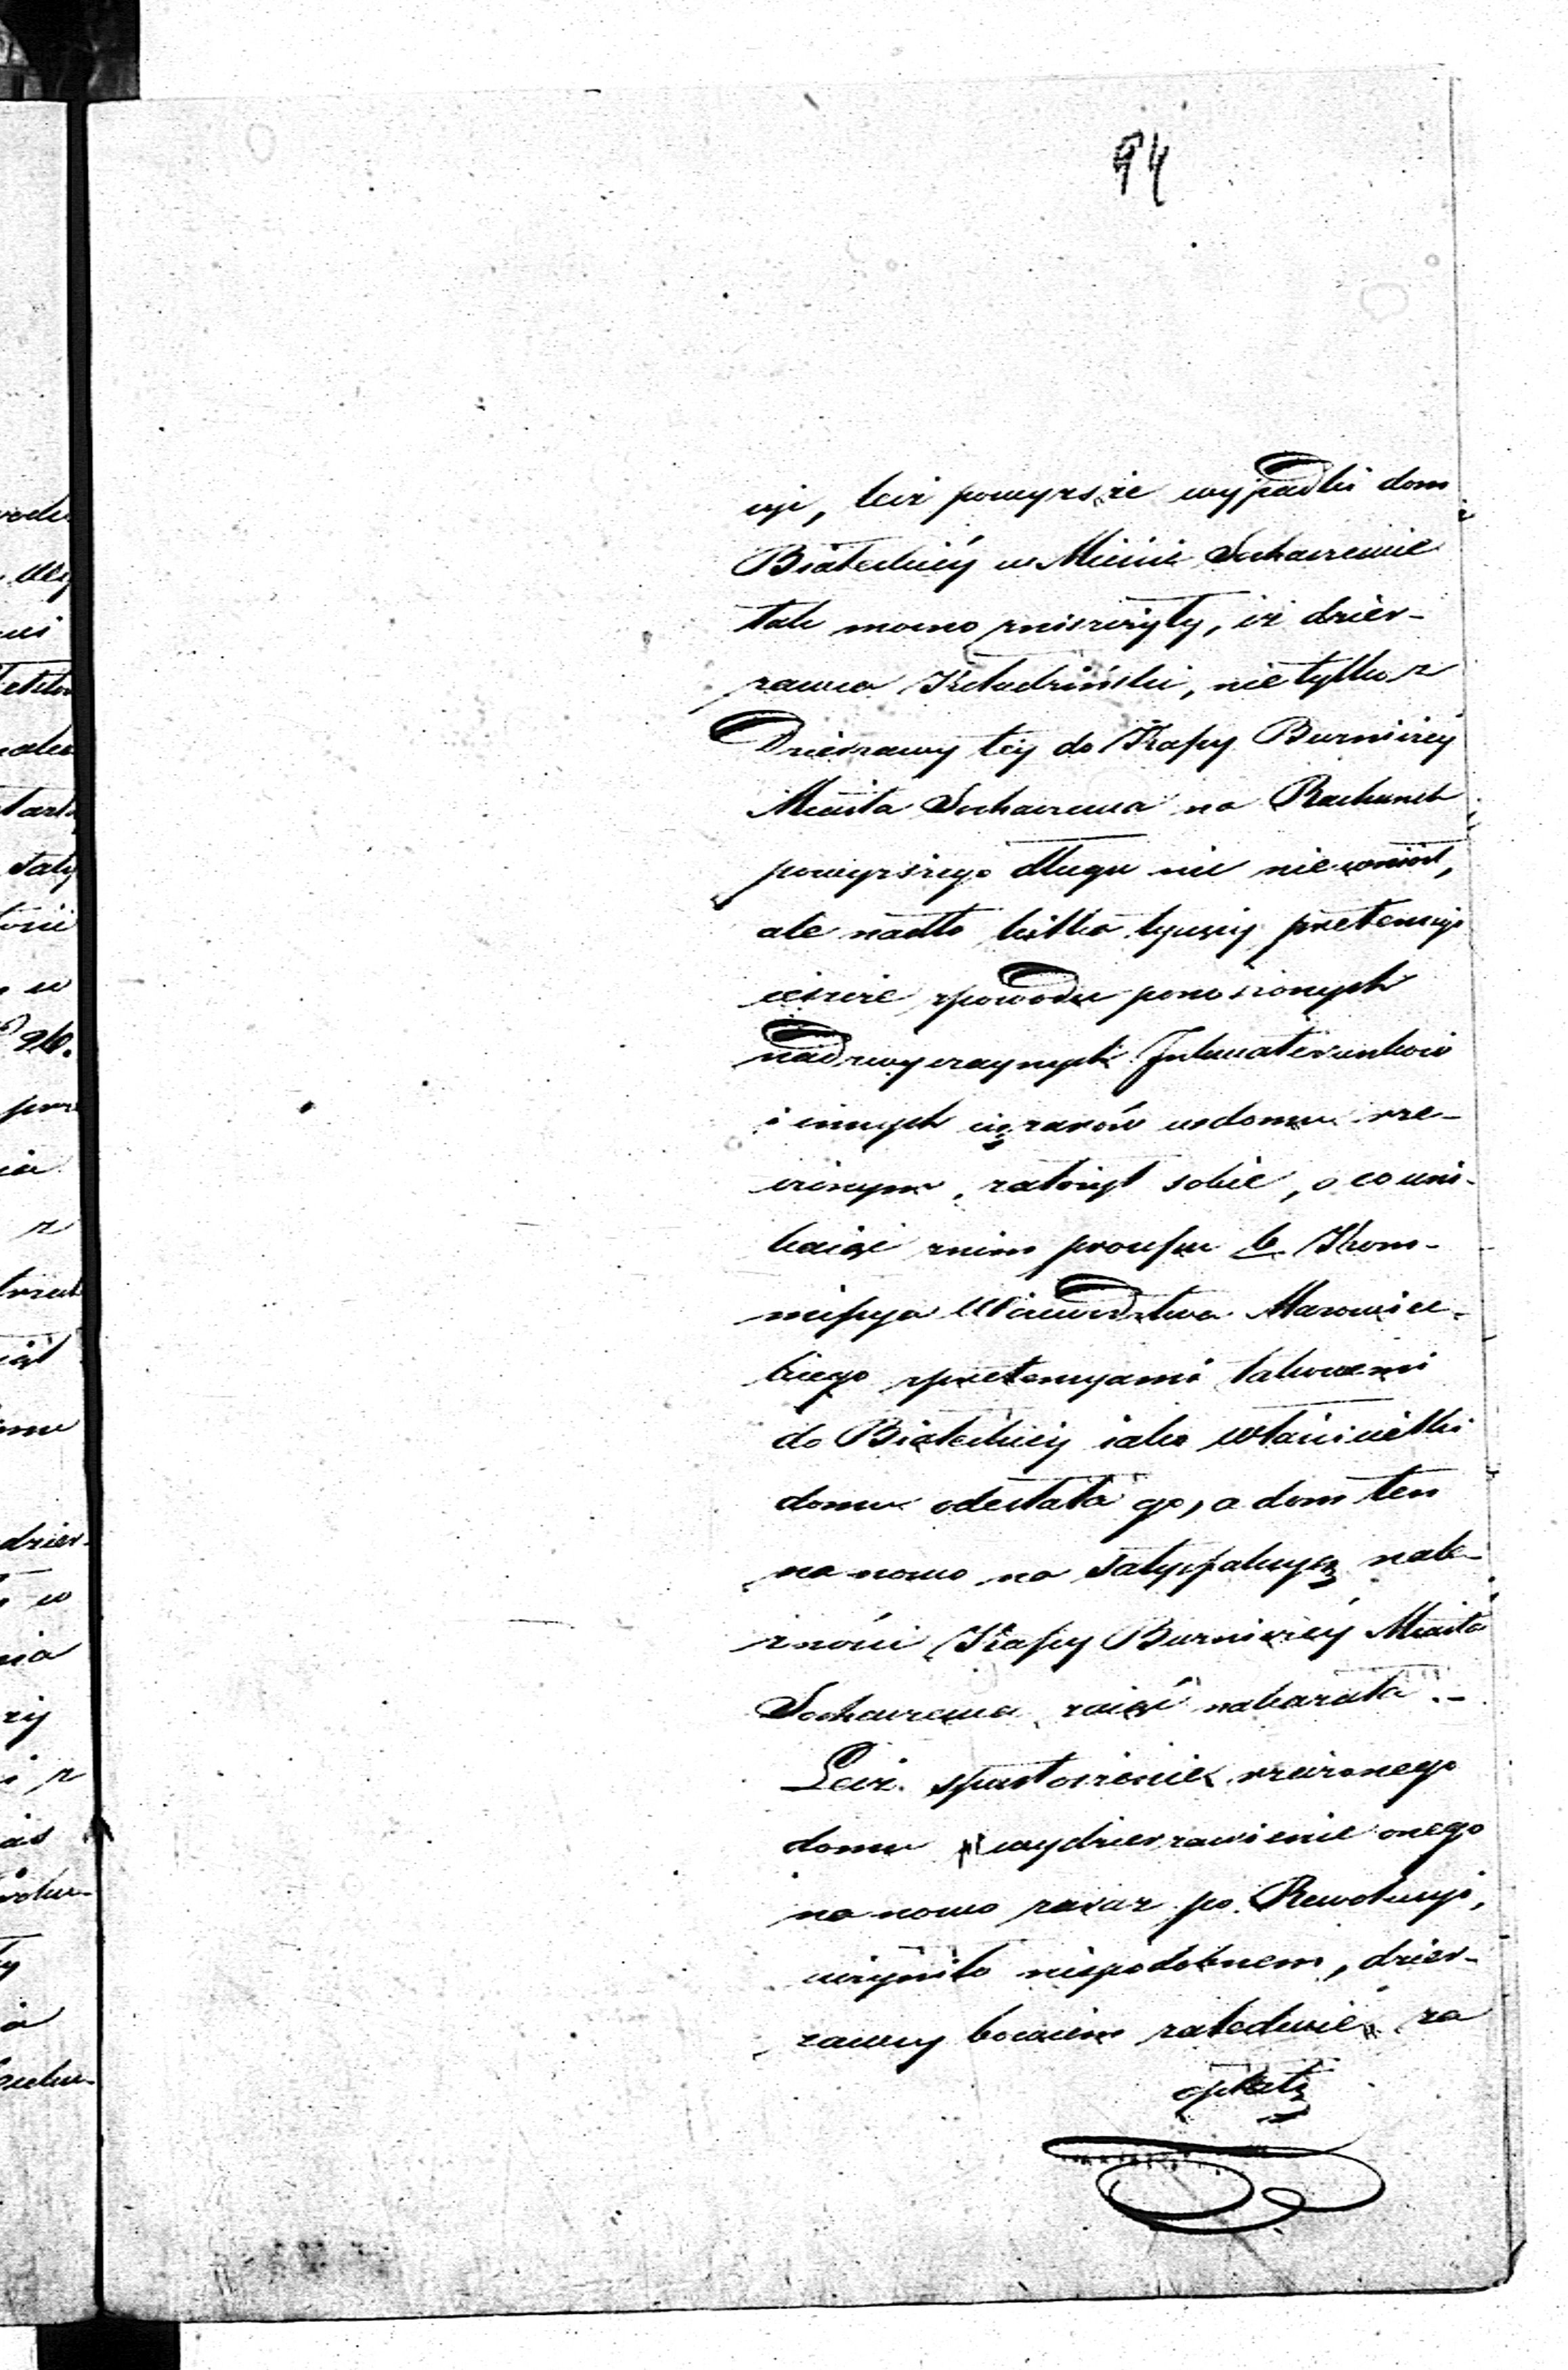 94
cyi, lecz powyższe wypadki dom
Białeckiéy w Mieście Sochaczewie
tak mocno zniszczyły, iż dzier-
zawca nietylko z
Dzierzawy tey do Kassy Burniczéy
Miasta Sochaczewa na Rachunek
powyższego długu nic nie wniósł,
ale nadto kilka tysięcy pretensyi
ieszcze zpowodu ponoszonych
nadzwyczaynych Inkwaterunków
i innych ciężarów w domu rze-
czonym, założył sobie, o co uni-
kaiąc z nim processu b. Kom-
missya Wiewództwa Mazowiec-
kiego zpretensyami takowemi
do Białeckiéy iako właścicielki
domu odesłała go, a dom ten
na nowo na satysfakcyą nale-
żności Kassy Burniczéy Miasta
Sochaczewa zaiąć nakazała. -
Lecz spustoszenie rzeczonego
domu wydzierzawienie onego
na nowo zaraz po Rewolucyi,
uczyniło niepodobnem, dzier-
zawcy bowiem zaledwie za
opłatą